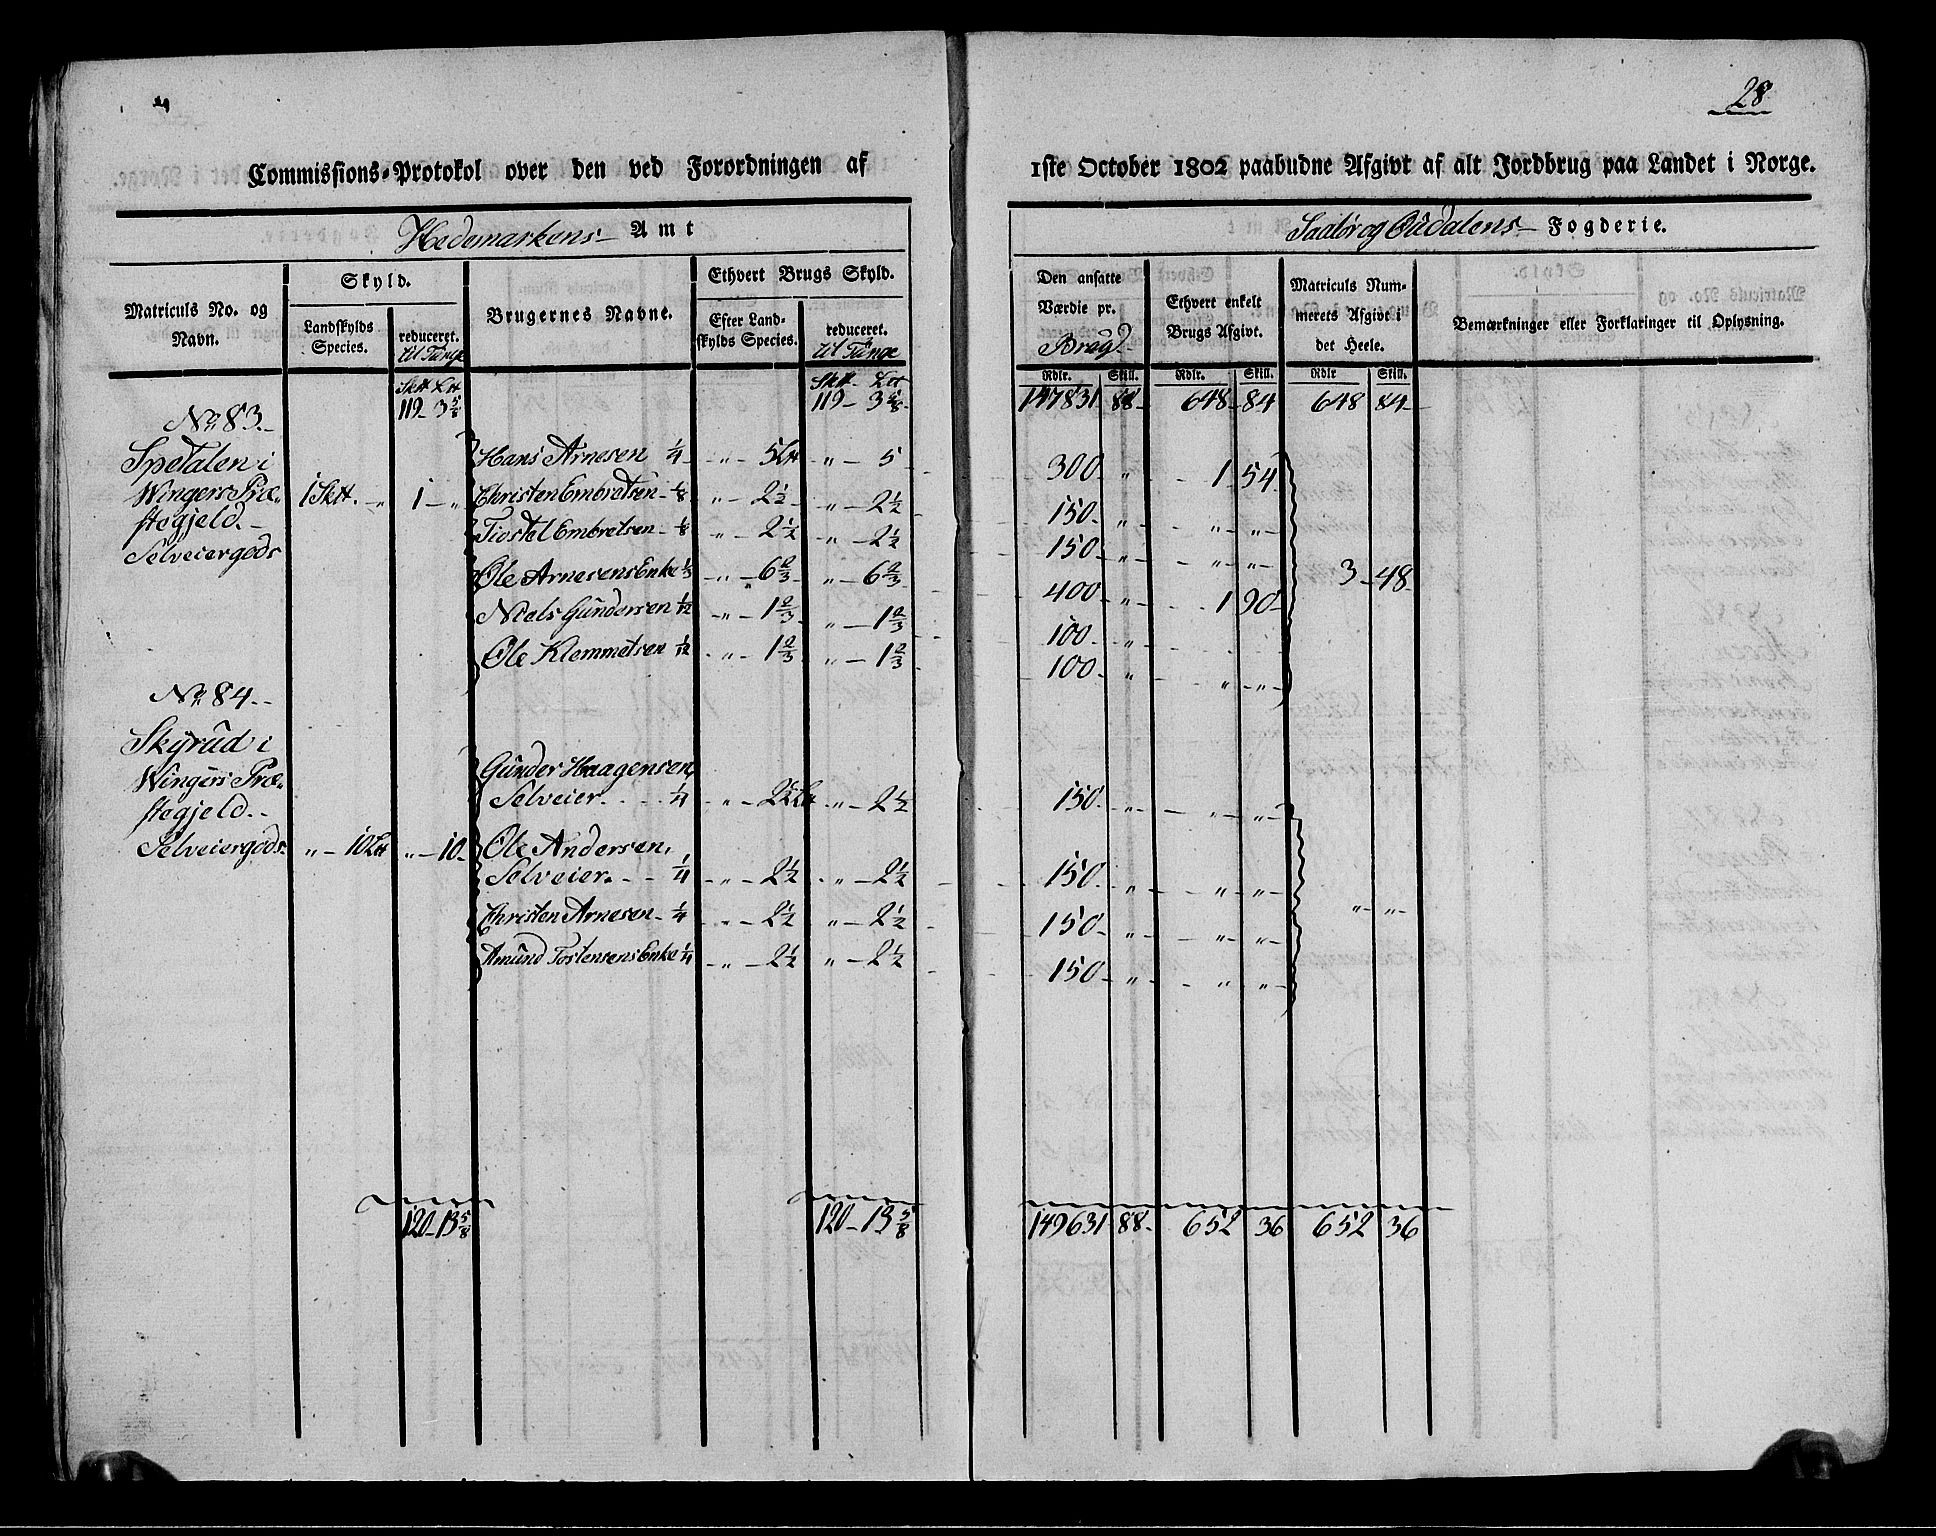 28
Commissions-Protokol over den ved Forordningen af 1ste October 1802 paabudne Afgivt af alt Jordbrug paa Landet i Norge.
Hedemarkens Amt
Soløer og Oudalens Fogderie.
Matriculs No. og Navn.
Skyld.
Landskylds Species.
reduceret. til Tunge
Brugernes Navne.
Ethvert Brugs Skyld.
Efter Landskylds Species.
reduceret. til Tunge
Den ansatte Værdie pr. Brug
Ethvert enkelt Brugs Afgivt.
Matriculs Nummerets Afgivt i det Heele.
Bemærkninger eller Forklaringer til Oplysning.
Rdlr. Skill. Rdlr. Skill. Rdlr Skill.
119 - 3 5/8 119 - 3 5/8 147831 88 648 84 648 84
No 83.
Spetalen i
Wingers Præ-
stegjeld.
Selveiergods
1 Skt. „ 1 - „
Hans Arnesen 1/4 - „ - 5 Lt „ - 5 300 „ 1 54
Christen Embretsen 1/8 „ - 2 1/2 „ - 2 1/2 150 „ „ „
Tiostel Embretsen 1/8 „ - 2 1/2 „ - 2 1/2 150 „ „ „
Ole Arnesens Enke 1/3 „ - 6 2/3 „ - 6 2/3 400 „ 1 90
3 - 48
Niels Gundersen 1/12 „ - 1 2/3 „ - 1 2/3 100 „
Ole Klemmetsen 1/12 „ - 1 2/3 „ - 1 2/3 100 „ „ „
No 84.
Skyrud i
Wingers Præ-
stegjeld.
Selveiergods.
„ - 10 Lt „ - 10
Gunder Haagensen,
Selveier. 1/4 „ 2 1/2 Lt „ - 2 1/2 150 „ „ „
Ole Andersen,
Selveier. 1/4 - „ - 2 1/2 „ - 2 1/2 150 „ „ „
Christen Arnesen 1/4 - „ - 2 1/2 „ - 2 1/2 150 „ „ „
„ „
Amund Tostensens Enke 1/4 - „ - 2 1/2 „ - 2 1/2 150 „ „ „
120 - 13 5/8 120 - 13 5/8 149631 88 652 36 652 36